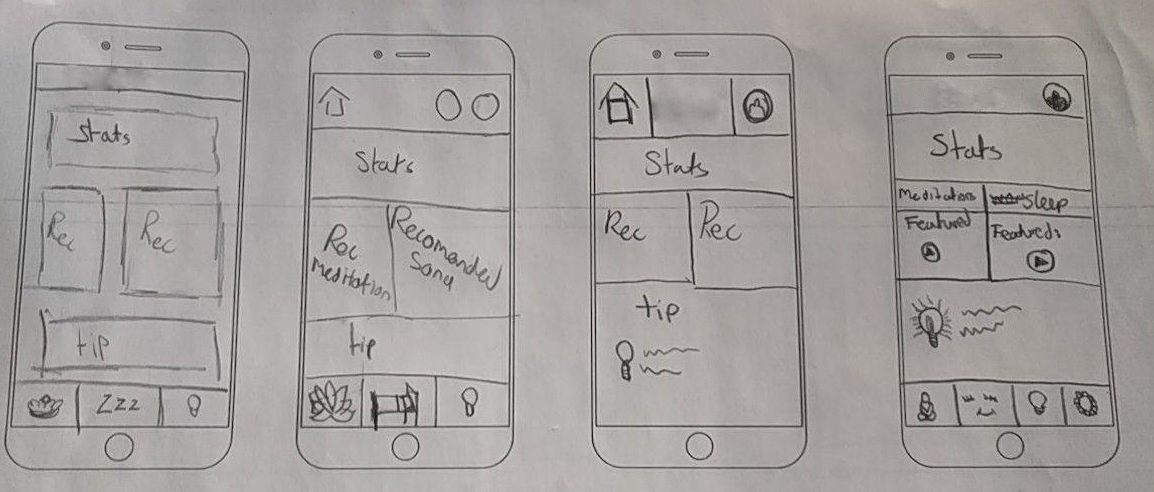 Stats
Rec
Rec
tip
Zzz
Stats
Rec
meditation
Recomanded
Song
tip
Stats
Rec
Rec
tip
Stats
Meditation
sleep
Featured
Featured: